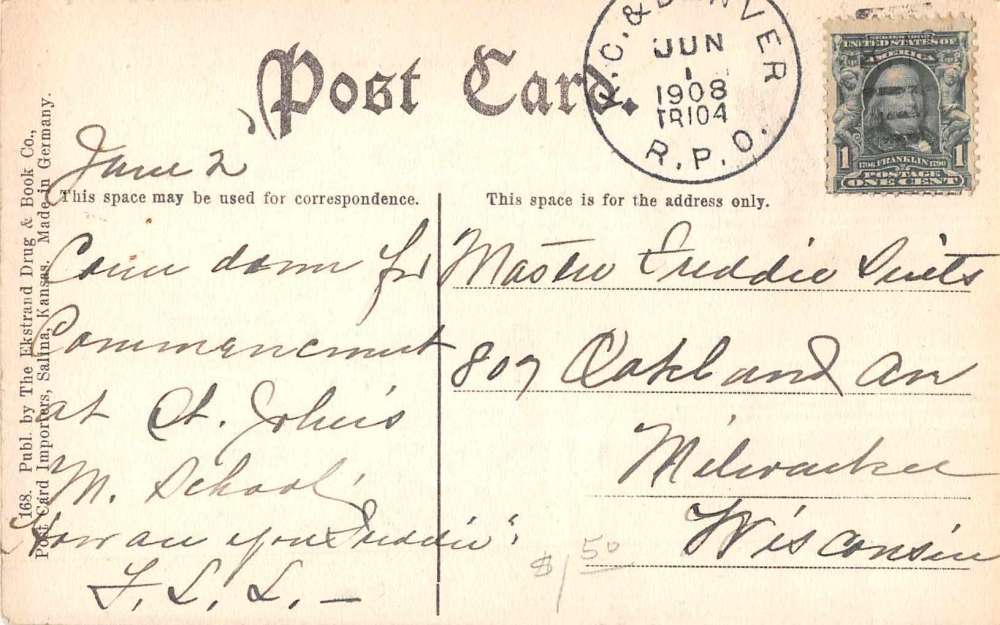 Post Card.
K.C. & DENVER
JUN
1
1908
TR104
R.P.O.
SERIES 1902
UNITED STATES OF
AMERICA
1 1706 FRANKLIN 1790 1
POSTAGE
ONE CENT
168. Publ. by The Ekstrand Drug & Book Co.,
Post Card Importers, Salina, Kansas. Made in Germany.
June 2
This space may be used for correspondence.
Come down for
Commencment
at St. John's
M. School.
How are you Freddie?
F. L. L. —
This space is for the address only.
Master Freddie
807 Oakland Av
Milwaukee
Wisconsin
$1 50